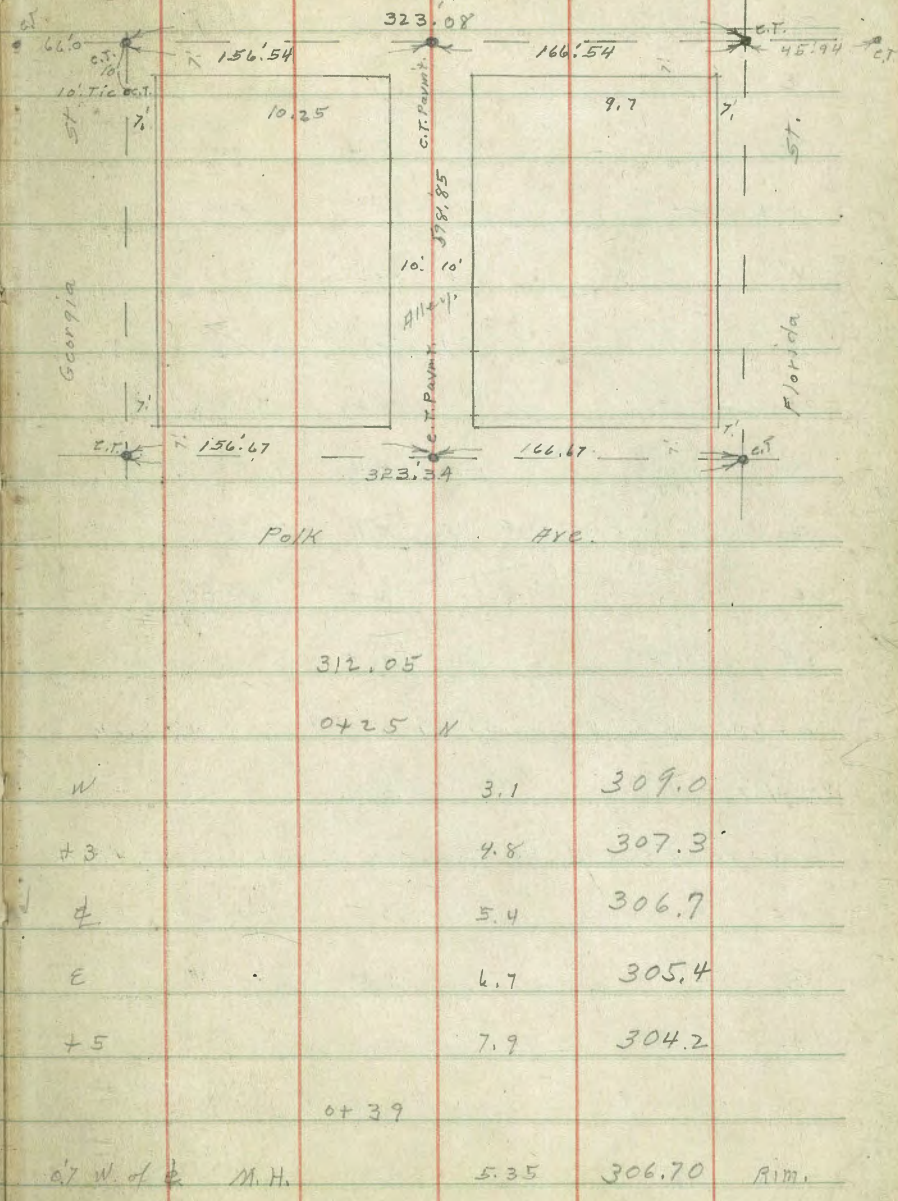 323.08
C.T. 66.0 7' 156.54 166.54 7' C.T. 45.94 C.T.
C.T.
10'
10' Tie C.T.
7' 10.25 C.T. Pavmt. 9.7 7'
St. St.
598.85
10' 10'
Alley.
Georgia Florida
C.T. Pavmt.
7' 7'
C.T. 7' 156.67 166.67 7' C.T.
323.34
Polk Ave.
312.05
0+25 N
W 3.1 309.0
+3 4.8 307.3
℄ 5.4 306.7
E 6.7 305.4
+5 7.9 304.2
0+39
0.7 W. of ℄ M.H. 5.35 306.70 Rim.